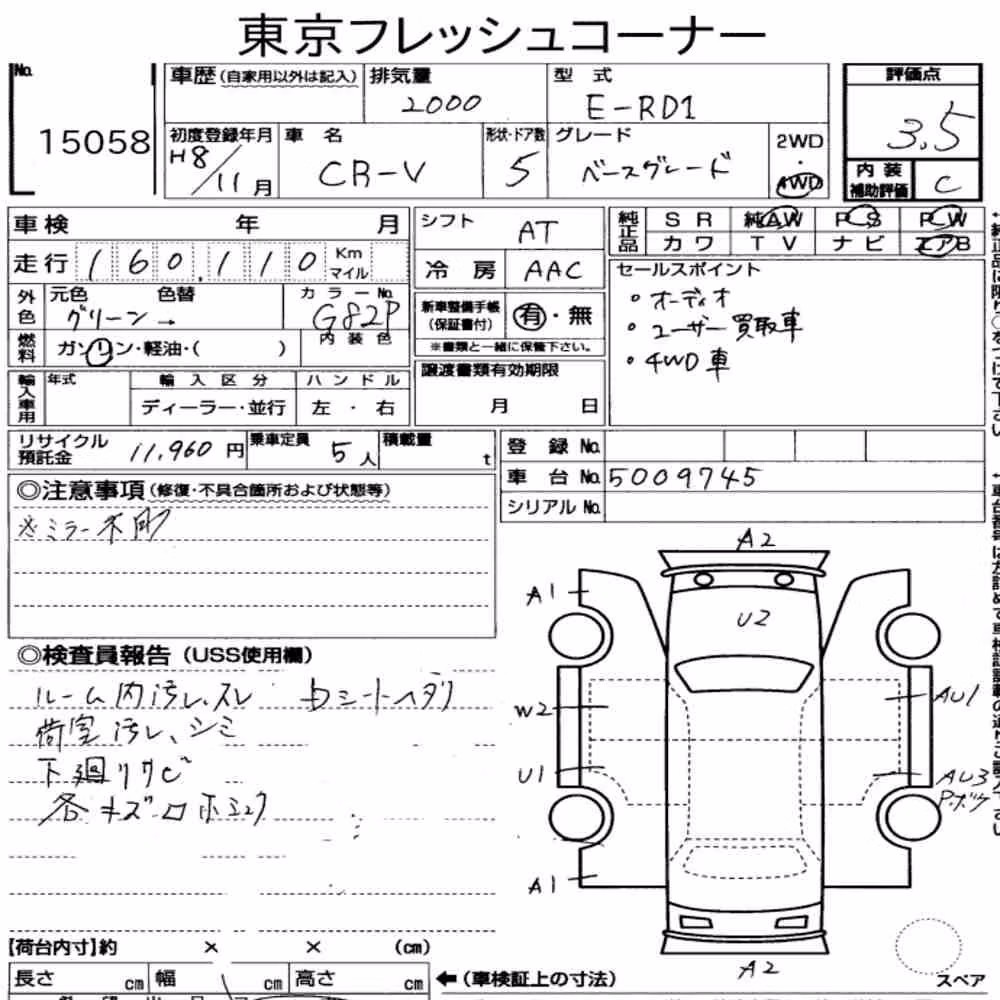 東京フレッシュコーナー
No.
15058
車歴(自家用以外は記入)
排気量
2000
型 式
E-RD1
評価点
3.5
初度登録年月
H8/11月
車 名
CR-V
形状・ドア数
5
グレード
ベースグレード
2WD
・
4WD
内装
補助評価
C
車検 年 月
シフト
AT
純正品
SR 純AW PS PW
カワ TV ナビ エアB
走行
160,110
Km
マイル
冷 房
AAC
セールスポイント
・オーディオ
・ユーザー買取車
・4WD車
外色
元色 色替
グリーン→
カラーNo.
G82P
新車整備手帳
(保証書付)
有・無
※書類と一緒に保管下さい。
燃料
ガソリン・軽油・( )
内装色
譲渡書類有効期限
月 日
輸入車用
年式
輸入区分
ディーラー・並行
ハンドル
左・右
リサイクル
預託金
11,960円
乗車定員
5人
積載量
t
登 録 No.
車 台 No.
5009745
シリアル No.
◎注意事項(修復・不具合箇所および状態等)
※ミラー不剛
◎検査員報告(USS使用欄)
ルーム内汚レ、スレ
シートヘタリ
荷室汚レ、シミ
下廻リサビ
各キズ
A2
A1
U2
W2
AU1
U1
AU3
P.ボケ
A1
A2
スペア
【荷台内寸】約 × × (cm)
長さ cm 幅 cm 高さ cm
←(車検証上の寸法)